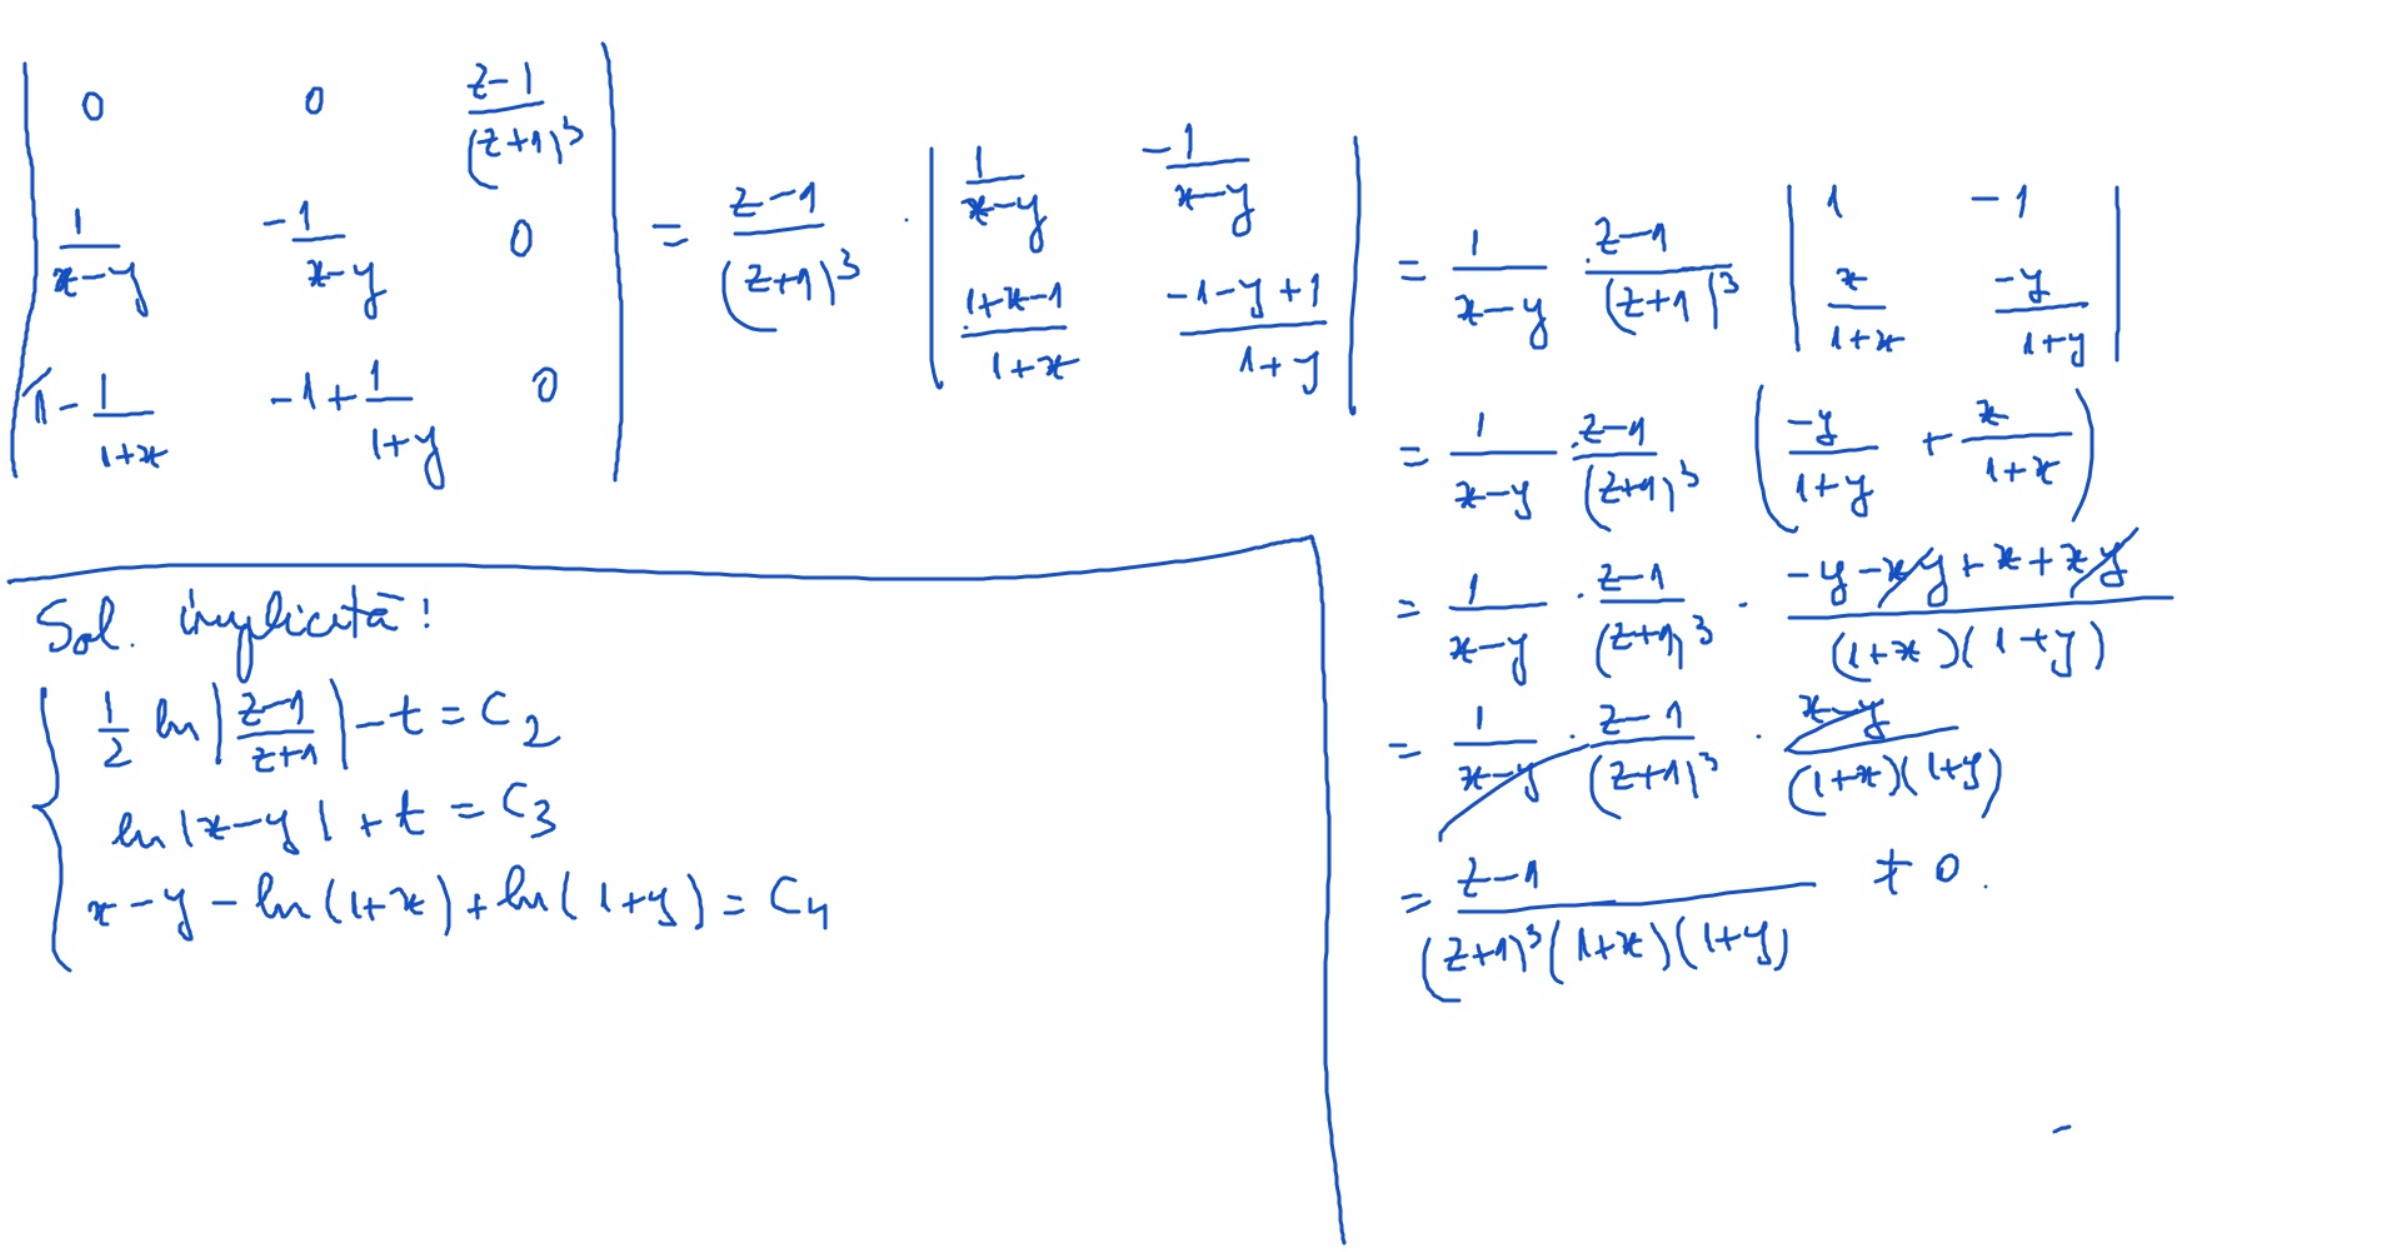 | 0 0 (z-1)/(z+1)^3 |
| 1/(x-y) -1/(x-y) 0 |
| 1 - 1/(1+x) -1 + 1/(1+y) 0 |
= (z-1)/(z+1)^3 · | 1/(x-y) -1/(x-y) |
| (1+x-1)/(1+x) (-1-y+1)/(1+y) |
= 1/(x-y) · (z-1)/(z+1)^3 | 1 -1 |
| x/(1+x) -y/(1+y) |
= 1/(x-y) · (z-1)/(z+1)^3 ( -y/(1+y) + x/(1+x) )
= 1/(x-y) · (z-1)/(z+1)^3 · (-y-xy+x+xy)/((1+x)(1+y))
= 1/(x-y) · (z-1)/(z+1)^3 · (x-y)/((1+x)(1+y))
= (z-1)/((z+1)^3(1+x)(1+y)) ≠ 0.
Sol. implicită!
{ 1/2 ln|(z-1)/(z+1)| - t = C_2
ln|x-y| + t = C_3
x-y - ln(1+x) + ln(1+y) = C_4